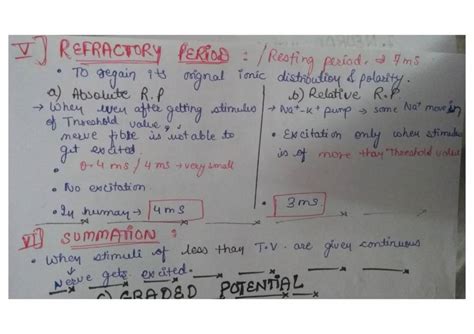 V] REFRACTORY PERIOD : / Resting period. → 7ms
• To regain its orignal ionic distribution & polarity.
a) Absolute R.P
→ When even after getting stimulus
of Threshold value,
nerve fibre is not able to
get excited.
0.4 ms / 4 ms → very small
• No excitation
• In human → 4 ms
b) Relative R.P
→ Na+-K+ pump → some Na+ move in
• Excitation only when stimulus
is of more than Threshold value
• 3 ms
VI] SUMMATION :
• When stimuli of less than T.V. are given continuous
Nerve gets excited.
c) GRADED POTENTIAL